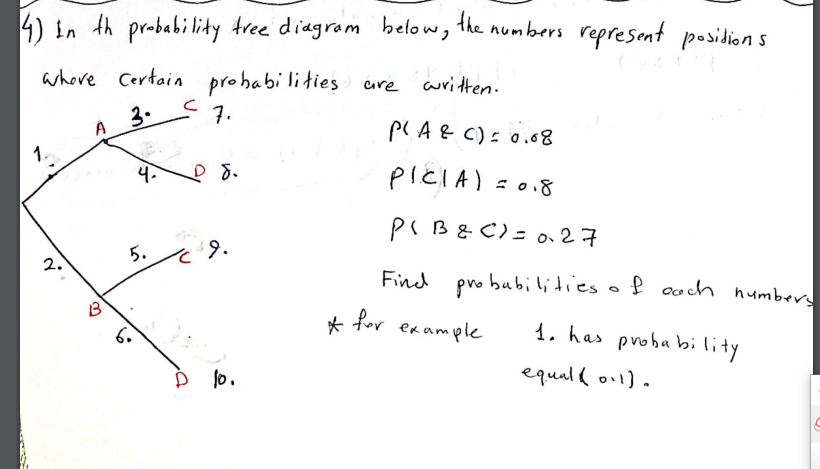 4) In th probability tree diagram below, the numbers represent positions
where certain probabilities are written.
A 3. C 7.
1.
4. D 8.
2. 5. C 9.
B
6.
D 10.
P( A & C) = 0.08
P(C|A) = 0.8
P( B & C) = 0.27
Find probabilities of each numbers
* for example 1. has probability
equal ( 0.1).